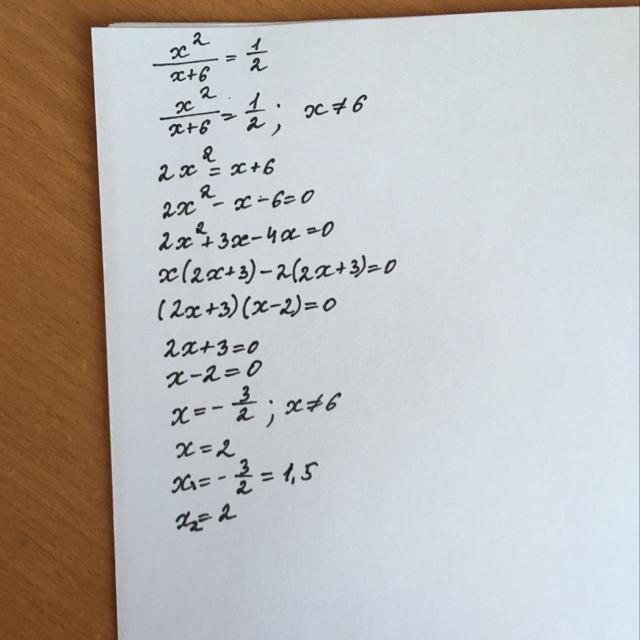 x²/(x+6) = 1/2
x²/(x+6) = 1/2; x≠6
2x² = x+6
2x² - x - 6 = 0
2x² + 3x - 4x = 0
x(2x+3) - 2(2x+3) = 0
(2x+3)(x-2) = 0
2x+3 = 0
x-2 = 0
x = -3/2; x≠6
x = 2
x₁ = -3/2 = 1,5
x₂ = 2